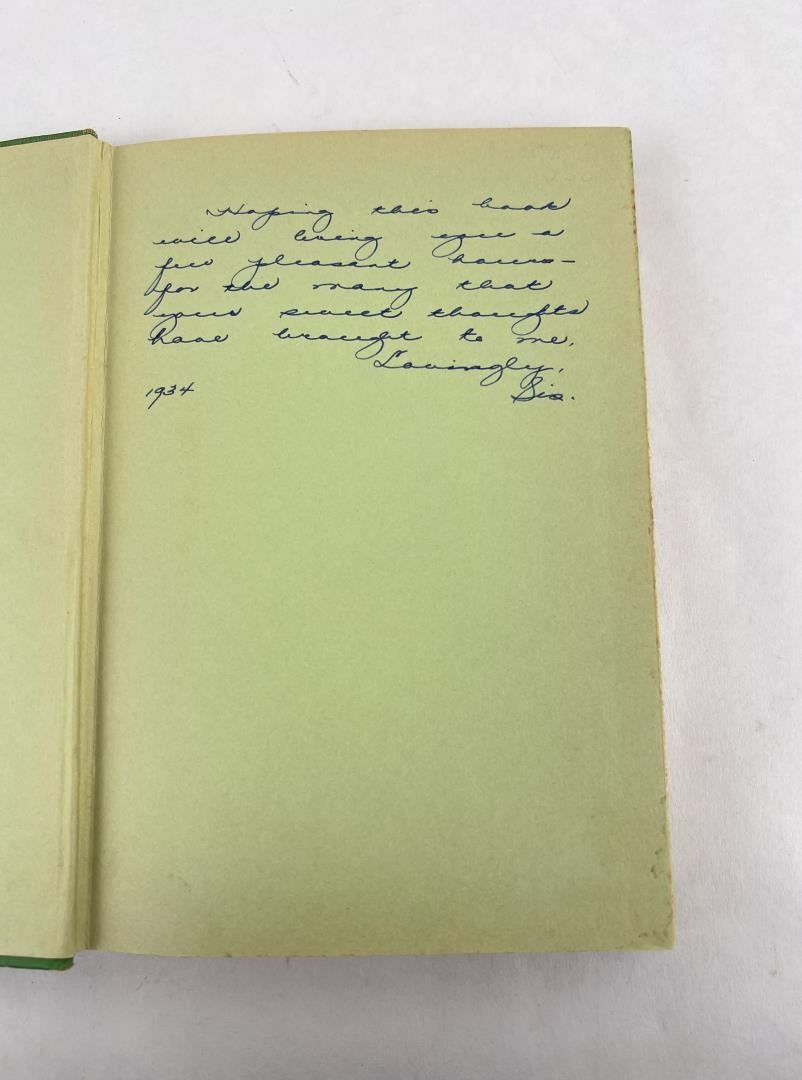 Hoping this book
will bring you a
few pleasant hours—
for the many that
your sweet thoughts
have brought to me.
Lovingly,
1934 Sis.